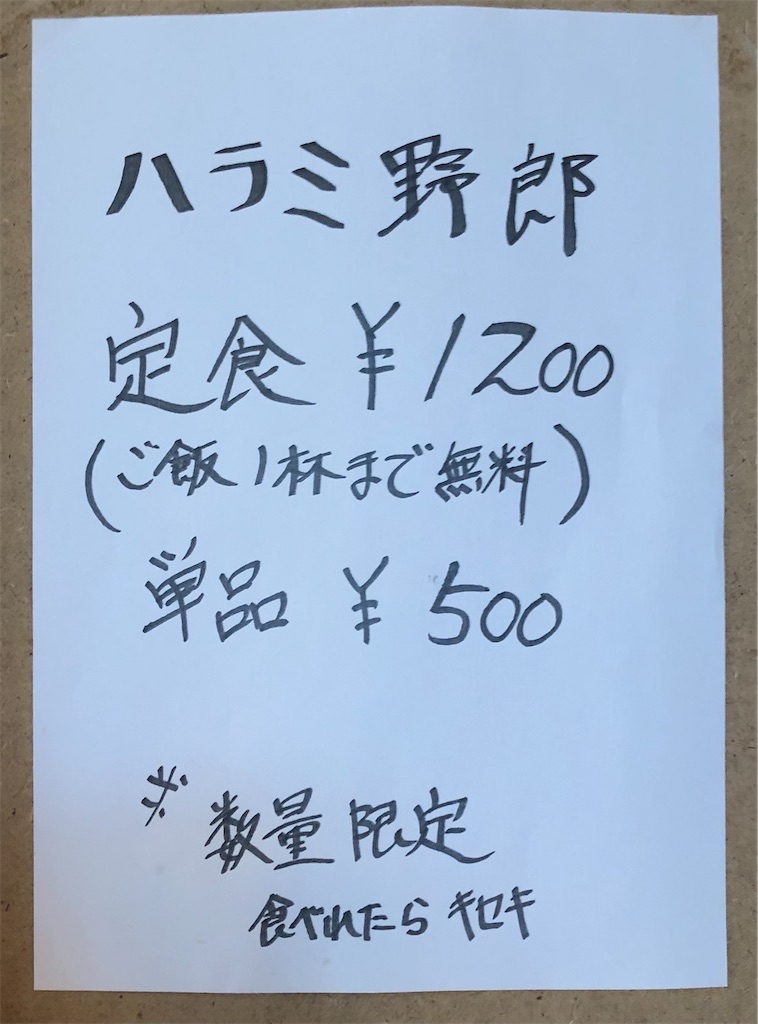 ハラミ野郎
定食 ¥1200
(ご飯1杯まで無料)
単品 ¥500
※数量限定
食べれたらキセキ